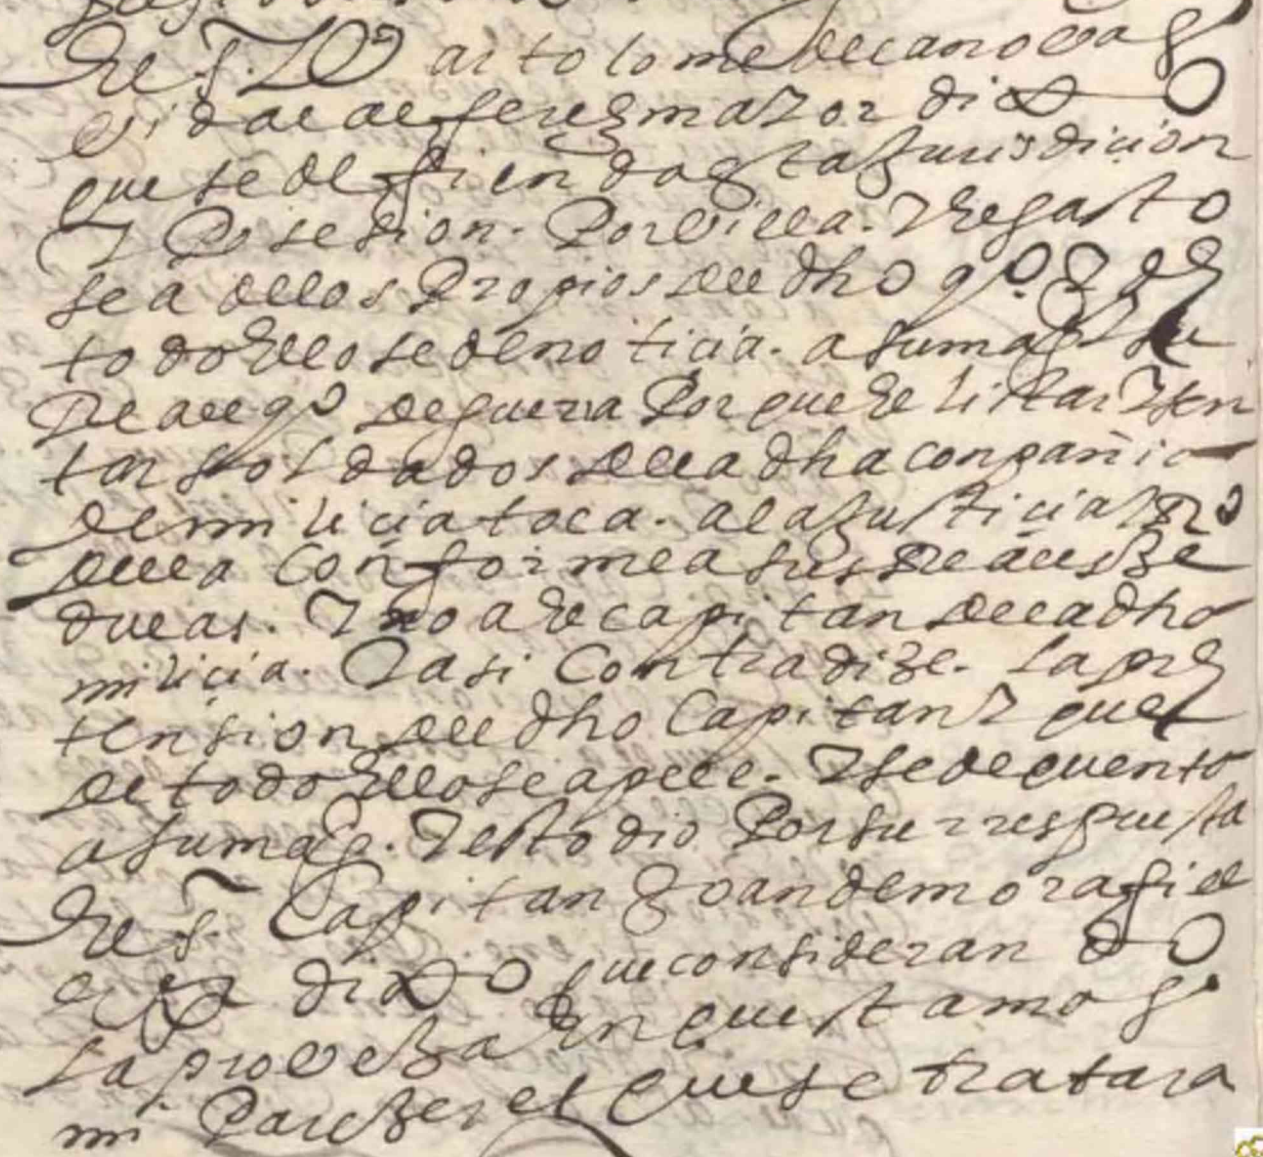 el s.r Bartolome de canobas
vidal alferez mayor dixo
que se defienda esta jurisdicion
y posesion. Por villa. y el gasto
sea de los propios del dho q.o y de
todo ello se de noticia. a su mag.d y su
Real q.o de guerra Porque el listar y sen
tar soldados de la dha conpañia
de milicia toca. a la justicia hor.o
della conforme a sus Reales ze
dulas. y no a el capitan de la dha
milicia. y asi contradize. la pre
tension del dho capitan y que
de todo ello se apele. y se de quenta
a su mag. y esto dio Por su rrespuesta
el s.r Capitan Joan de mora fiel
ex.or dixo que considerando
la probeza en que estamos
mi Parezer es que se tratara